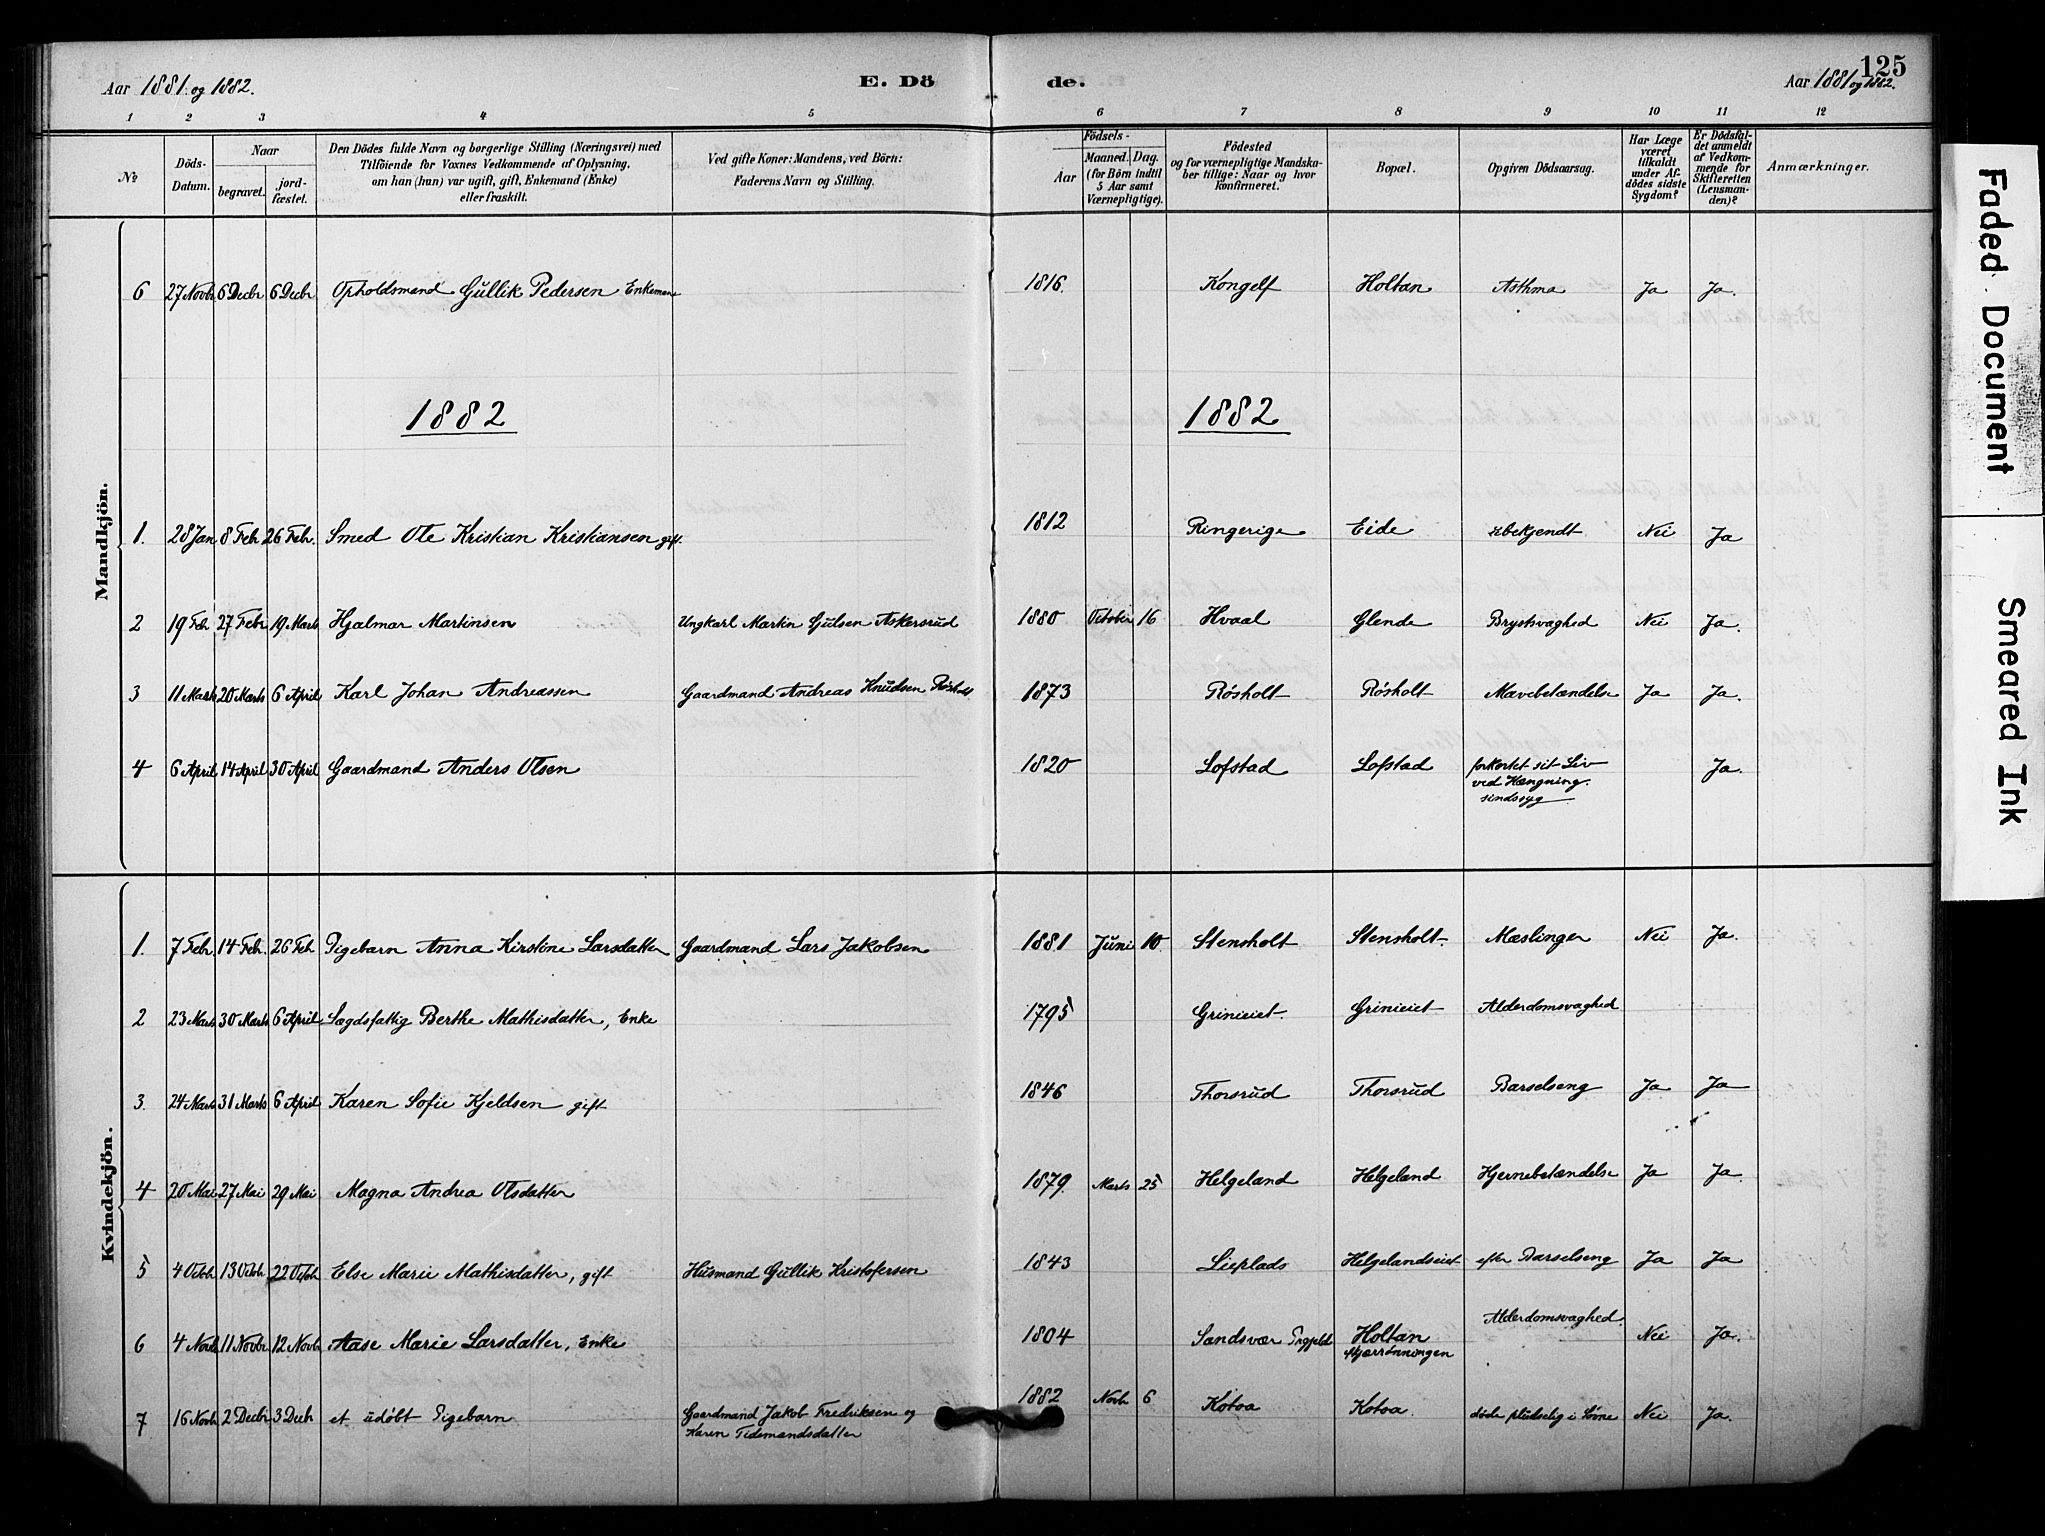 125
Aar 1881 og 1882.
E. Dö
de.
Aar 1881 og 1882.
1 2 3 4 5 6 7 8 9 10 11 12
№
Döds-
Datum.
Naar
begravet.
jord-
fæstet.
Den Dödes fulde Navn og borgerlige Stilling (Næringsvei) med
Tilföiende for Voxnes Vedkommende af Oplysning,
om han (hun) var ugift, gift, Enkemand (Enke)
eller fraskilt.
Ved gifte Koner: Mandens, ved Börn:
Faderens Navn og Stilling.
Födsels-
Aar
Maaned.
Dag.
(for Börn indtil
5 Aar samt
Værnepligtige).
Födested
og for værnepligtige Mandska-
ber tillige: Naar og hvor
konfirmeret.
Bopæl.
Opgiven Dödsaarsag.
Har Læge
været
tilkaldt
under Af-
dödes sidste
Sygdom?
Er Dödsfal-
det anmeldt
af Vedkom-
mende for
Skifteretten
(Lensman-
den)?
Anmærkninger.
Mandkjön.
6 27 Novbr 6 Decbr 6 Decbr Opholdsmand Gullik Pedersen Enkemand 1816 Kongelf Holtan Asthma Ja Ja.
1882 1882
1. 28 Jan 8 Feb 26 Feb. Smed Ole Kristian Kristiansen gift. 1812 Ringerige Eide ubekjendt Nei Ja
2 19 Feb 27 Febr 19 Marts Hjalmar Martinsen Ungkarl Martin Gulsen Askersrud 1880 October 16 Hvaal Glende Brystsvaghed Nei Ja.
3 11 Marts 20 Marts 6 April Karl Johan Andreassen Gaardmand Andreas Knudsen Røsholt 1873 Røsholt Røsholt Mavebetændelse Ja Ja.
4 6 April 14 April 30 April Gaardmand Anders Olsen 1820 Lofstad Lofstad forkortet sit Liv
ved Hængning.
sindssyg
Ja.
Kvindekjön.
1. 7 Febr. 14 Feb. 26 Feb Pigebarn Anna Kirstine Larsdatter Gaardmand Lars Jakobsen 1881 Juni 10 Stensholt Stensholt. Mæslinger Nei Ja.
2 23 Marts 30 Marts 6 April Lægdsfattig Berthe Mathisdatter, Enke 1795 Grinieiet. Grinieiet Alderdomsvaghed
3. 24 Marts 31 Marts 6 April Karen Sofie Kjeldsen gift 1846 Thorsrud Thorsrud Barselseng Ja Ja
4 20 Mai 27 Mai 29 Mai Magna Andrea Olsdatter 1879. Marts 25 Helgeland Helgeland Hjernebetændelse Ja Ja.
5 4 Octbr 13 Octbr 22 Octbr Else Marie Mathisdatter, gift Husmand Gullik Kristofersen 1843 Lieplads Helgelandseiet efter Barselseng Ja Ja
6 4 Novb 11 Novbr 12 Novbr Aase Marie Larsdatter, Enke 1804 Sandsvær Prgjeld Holtan
Alderdomsvaghed. Nei Ja.
7 16 Novb 2 Decbr 3 Decb et udøbt Pigebarn Gaardmand Jakob Fredriksen og
Karen Tidemandsdatter
1882 Novb 6 Kotoa Kotoa. døde pludselig i Søvne Nei Ja.
Faded Document
Smeared Ink